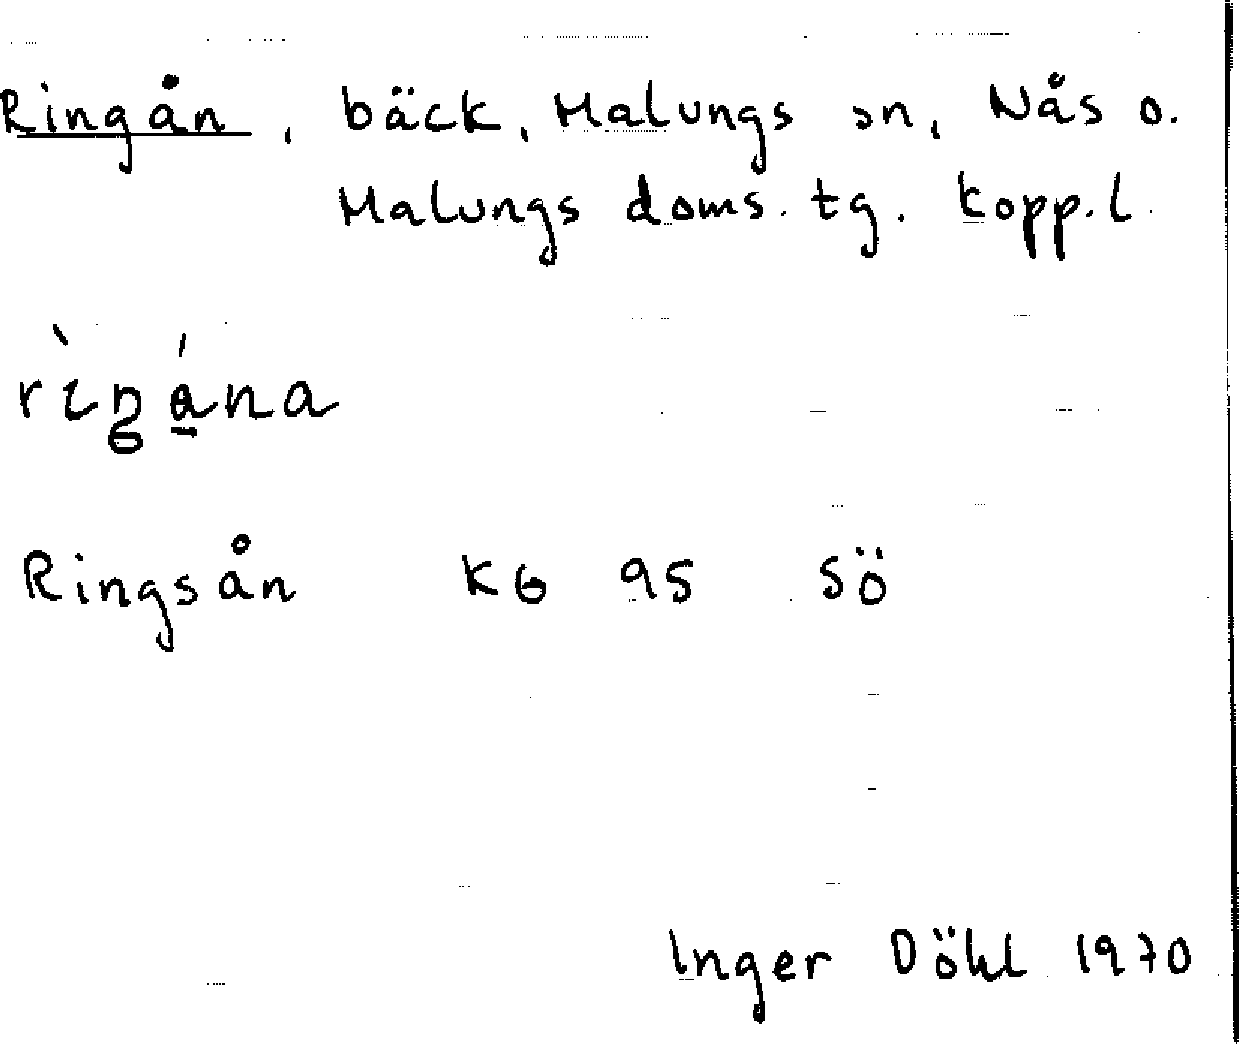 Ringån, bäck, Malungs sn, Nås o.
Malungs doms. tg. Kopp. l.
rìŋána
Ringsån KG 95 Sö
Inger Döhl 1970